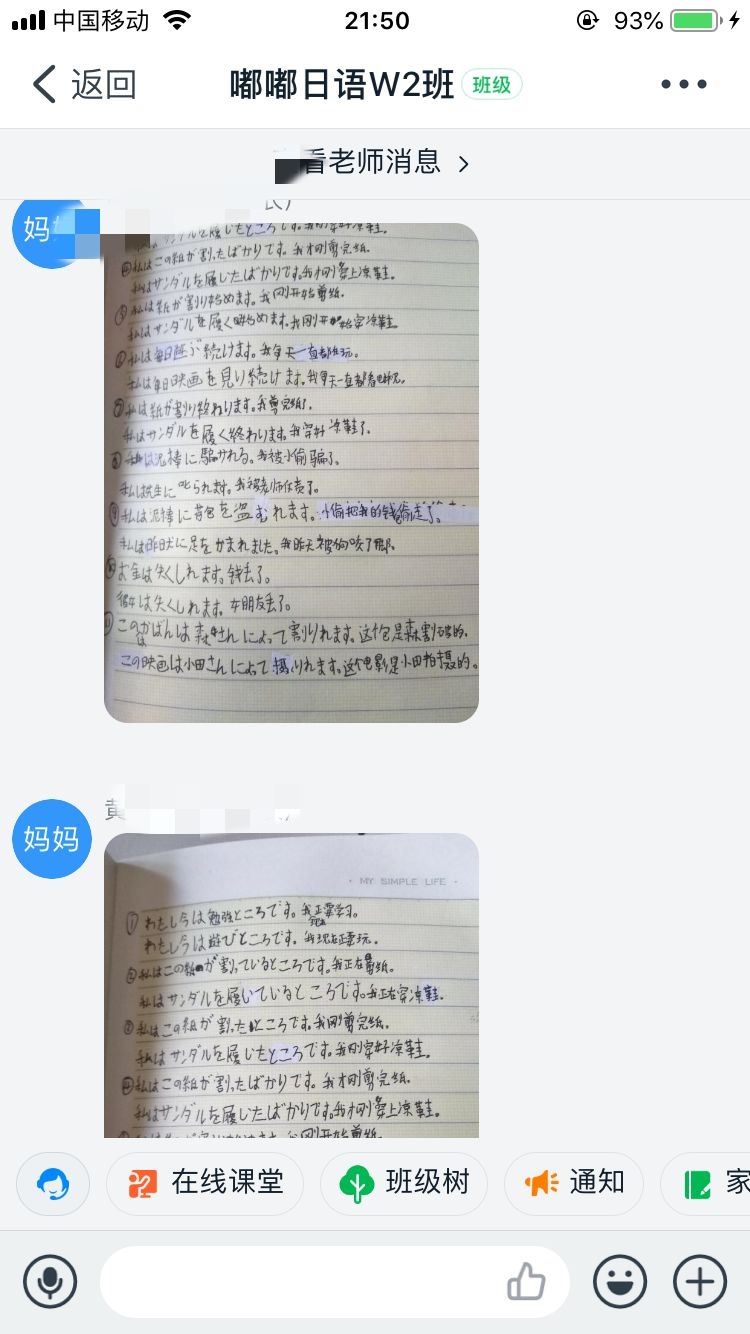 中国移动
21:50
93%
返回
嘟嘟日语W2班
班级
看老师消息
妈
私はこの紙が割ったばかりです。我才刚剪完纸.
私はサンダルを履じたばかりです。我才刚穿上凉鞋.
③私は紙が割り始めます。我刚开始剪纸.
私はサンダルを履く始めます.我刚开始穿凉鞋.
私は毎日遊ぶ続けます。我每天一直都在玩。
私は毎日映画を見り続けます。我每天一直都看电影.
⑦私は紙が割り終わります。我剪完纸了.
私はサンダルを履く終わります。我穿好凉鞋了.
⑧私は泥棒に騙かれる。我被小偷骗了。
私は先生に叱られます。我被老师斥责了。
⑨私は泥棒に を盗むれます。小偷把我的钱偷走了。
私は昨日犬に足をかまれました。我昨天被狗咬了脚.
⑩お金は失くしれます。钱丢了。
彼女は失くしれます。女朋友丢了。
⑪このかばんは森さんによって割りれます。这个包是森割破的.
は
この映画は小田さんによって撮りれます。这个电影是小田拍摄的。
妈妈
黄
· MY SIMPLE LIFE ·
①わたし今は勉強ところです。我正要学习。
わたし今は遊びところです。我现在正要玩.
②私はこの紙が割っているところです。我正在剪纸。
私はサンダルを履いているところです.我正在穿凉鞋.
③私はこの紙が割ったところです。我刚剪完纸.
私はサンダルを履じたところです。我刚穿好凉鞋。
④私はこの紙が割ったばかりです。我才刚剪完纸.
私はサンダルを履じたばかりです.我才刚穿上凉鞋。
在线课堂
班级树
通知
家